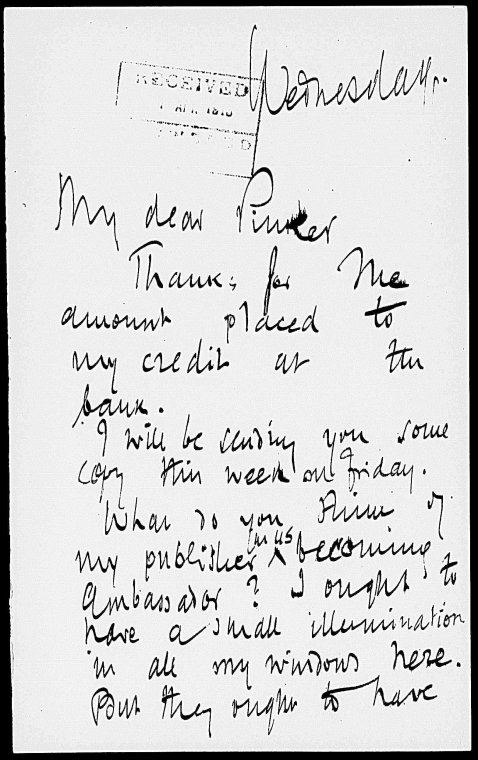 RECEIVED
Wednesday.
My dear Pinker
Thanks for the
amount placed to
my credit at the
bank.
I will be sending you some
copy this week on Friday.
What do you think of
my publisher for US becoming
Ambassador? I ought to
have a small illumination
in all my windows here.
But they ought to have